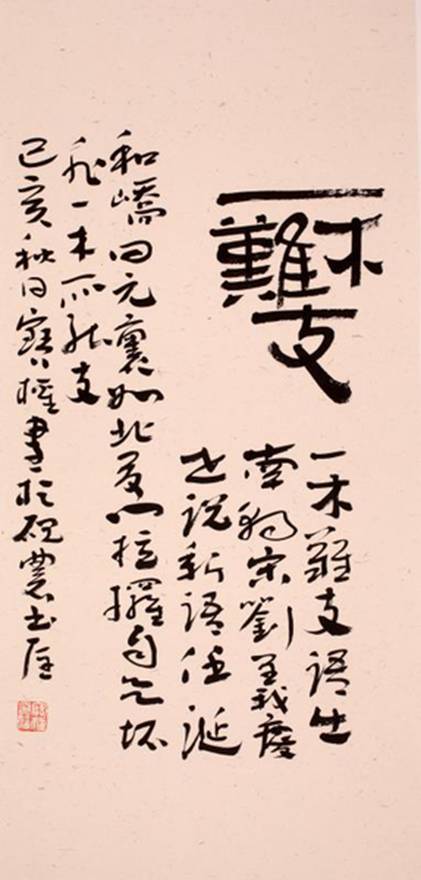 一木難支
一木難支語出
南朝宋劉義慶
世説新語任誕
和嶠曰元裒如北夏門拉攞自欲坏
非一木所能支
己亥秋日寶權書於硯農书屋